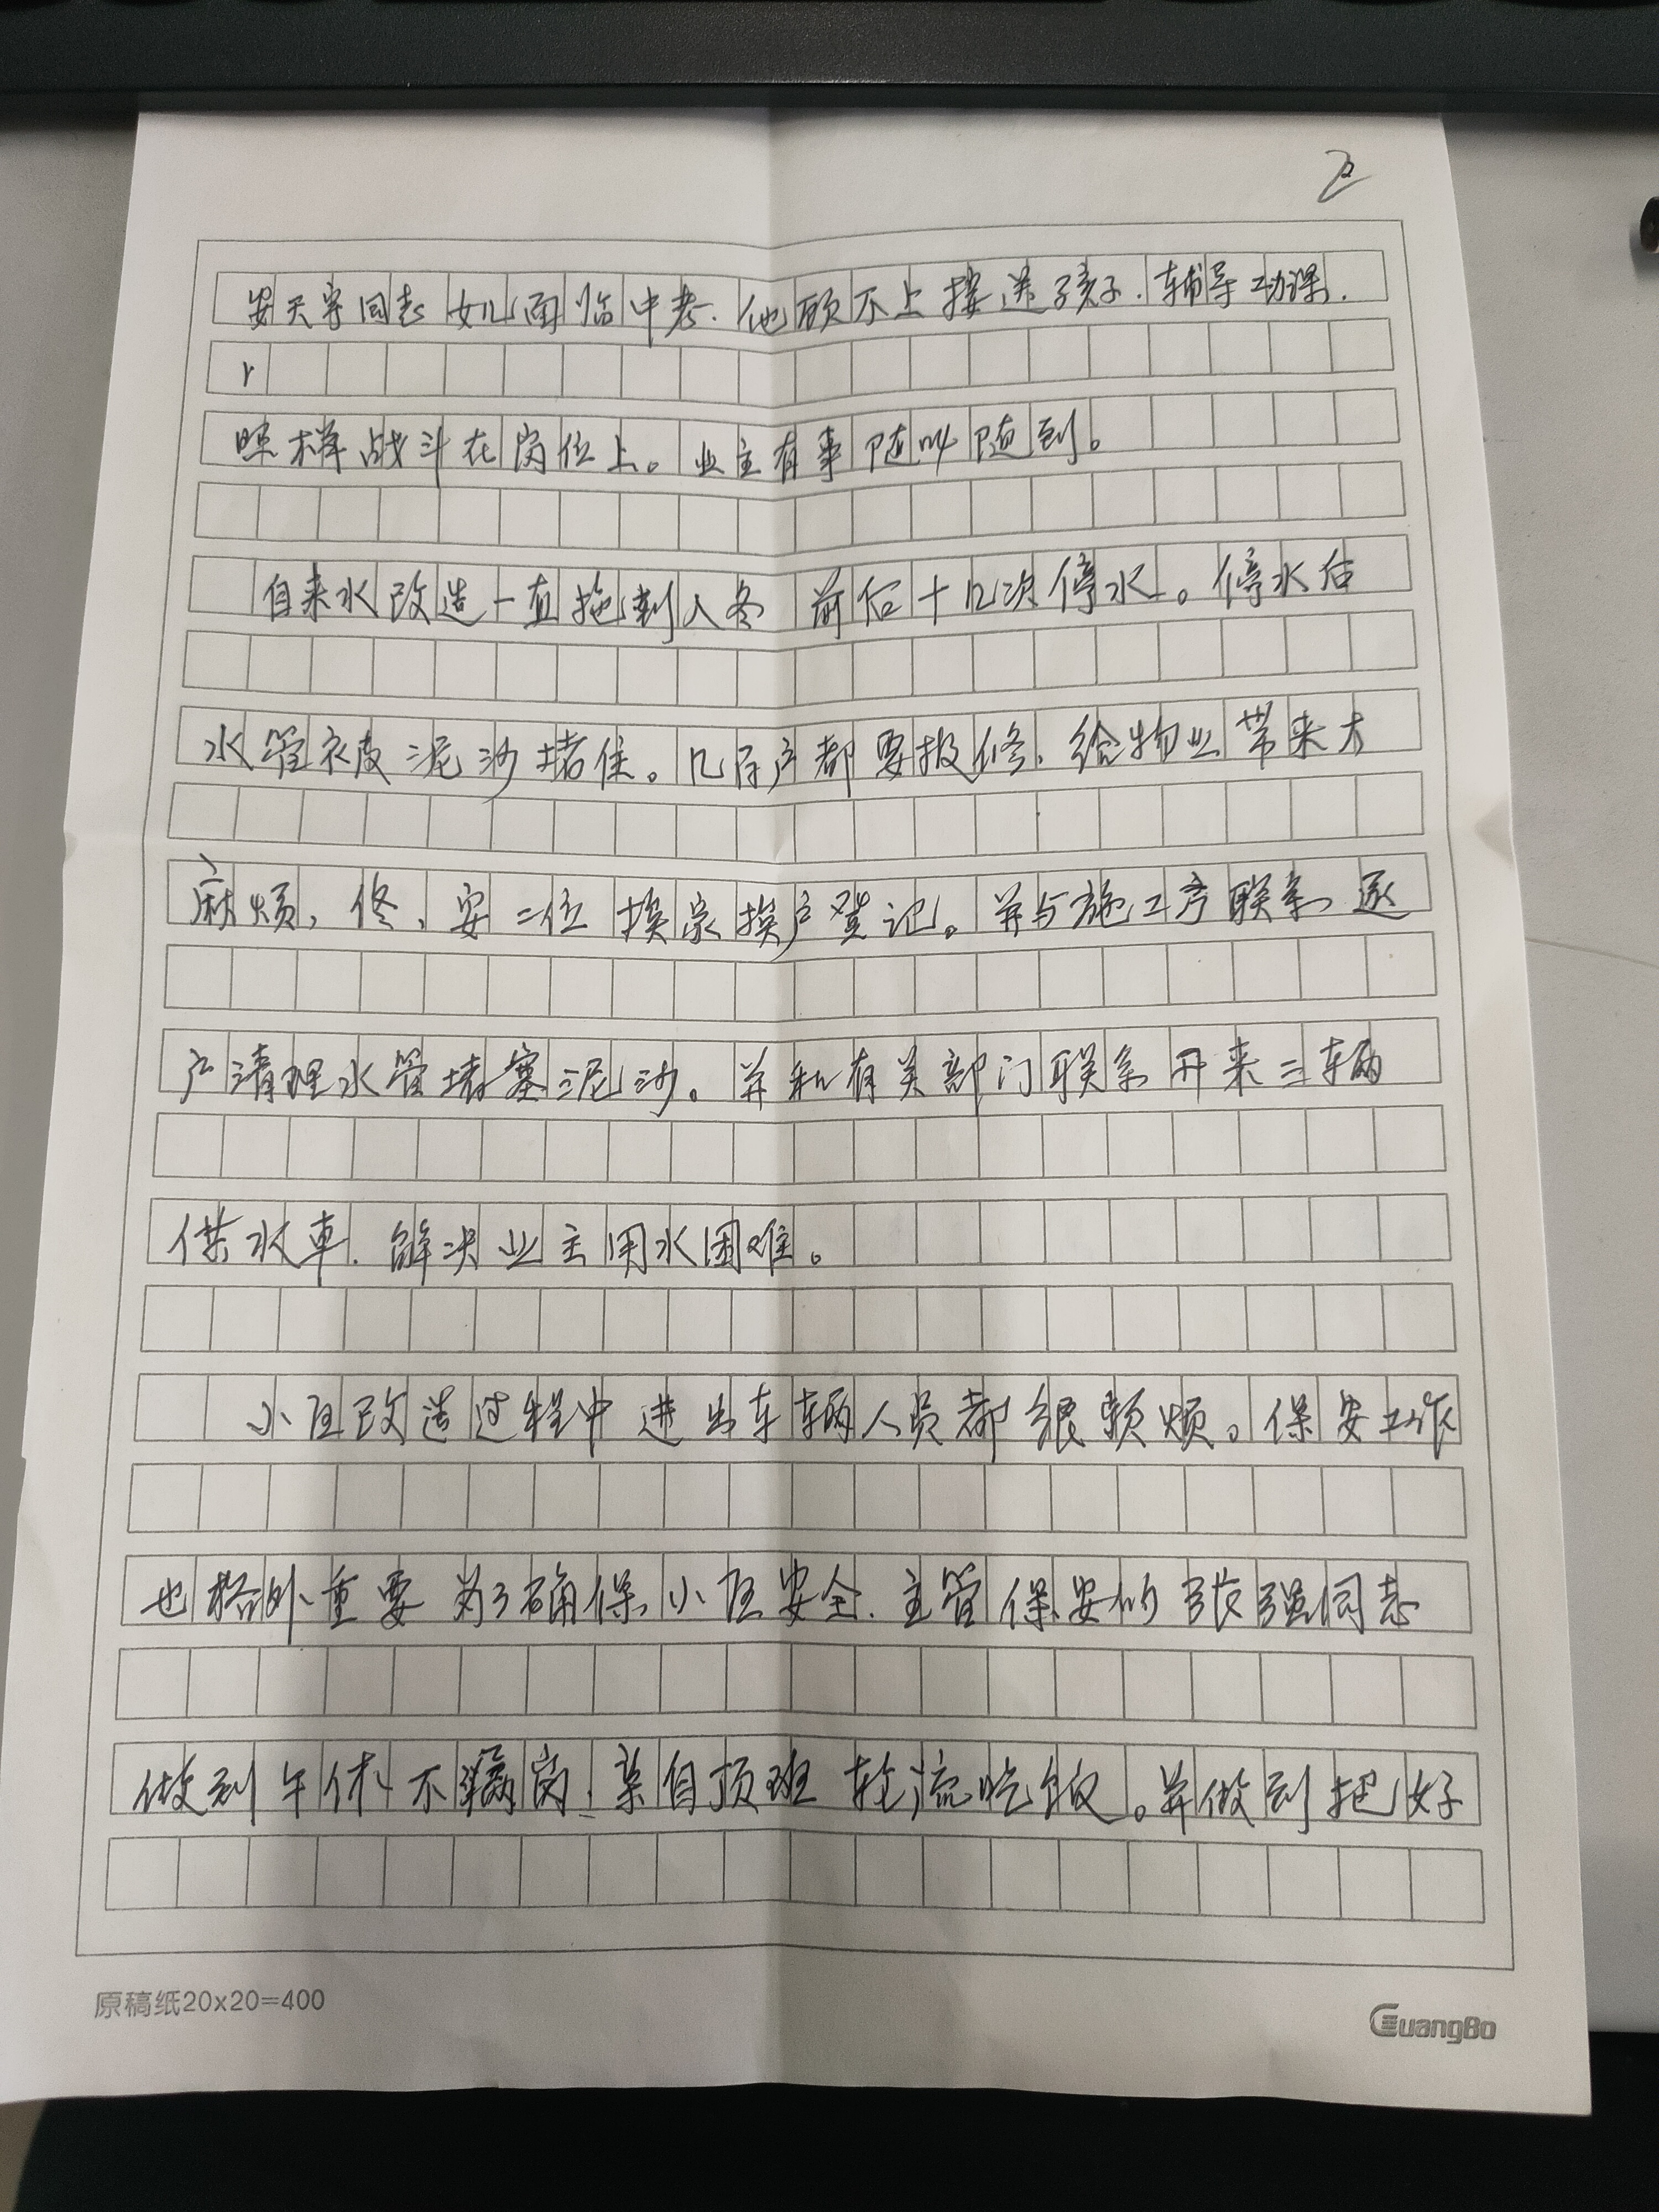 2
安天宇同志女儿面临中考.他顾不上接送孩子.辅导功课.
照样战斗在岗位上。业主有事随叫随到。
自来水改造一直拖到入冬 前后十几次停水。停水后
水管被泥沙堵住。几百户都要报修.给物业带来大
麻烦,佟、安二位挨家挨户登记。并与施工方联系逐
户清理水管堵塞泥沙。并和有关部门联系开来三辆
供水車.解决业主用水困难。
小区改造过程中进出车辆人员都很频烦。保安工作
也格外重要 为了确保小区安全.主管保安的张强同志
做到午休不漏岗,亲自顶班 轮流吃饭。并做到把好
原稿纸20x20=400
GuangBo